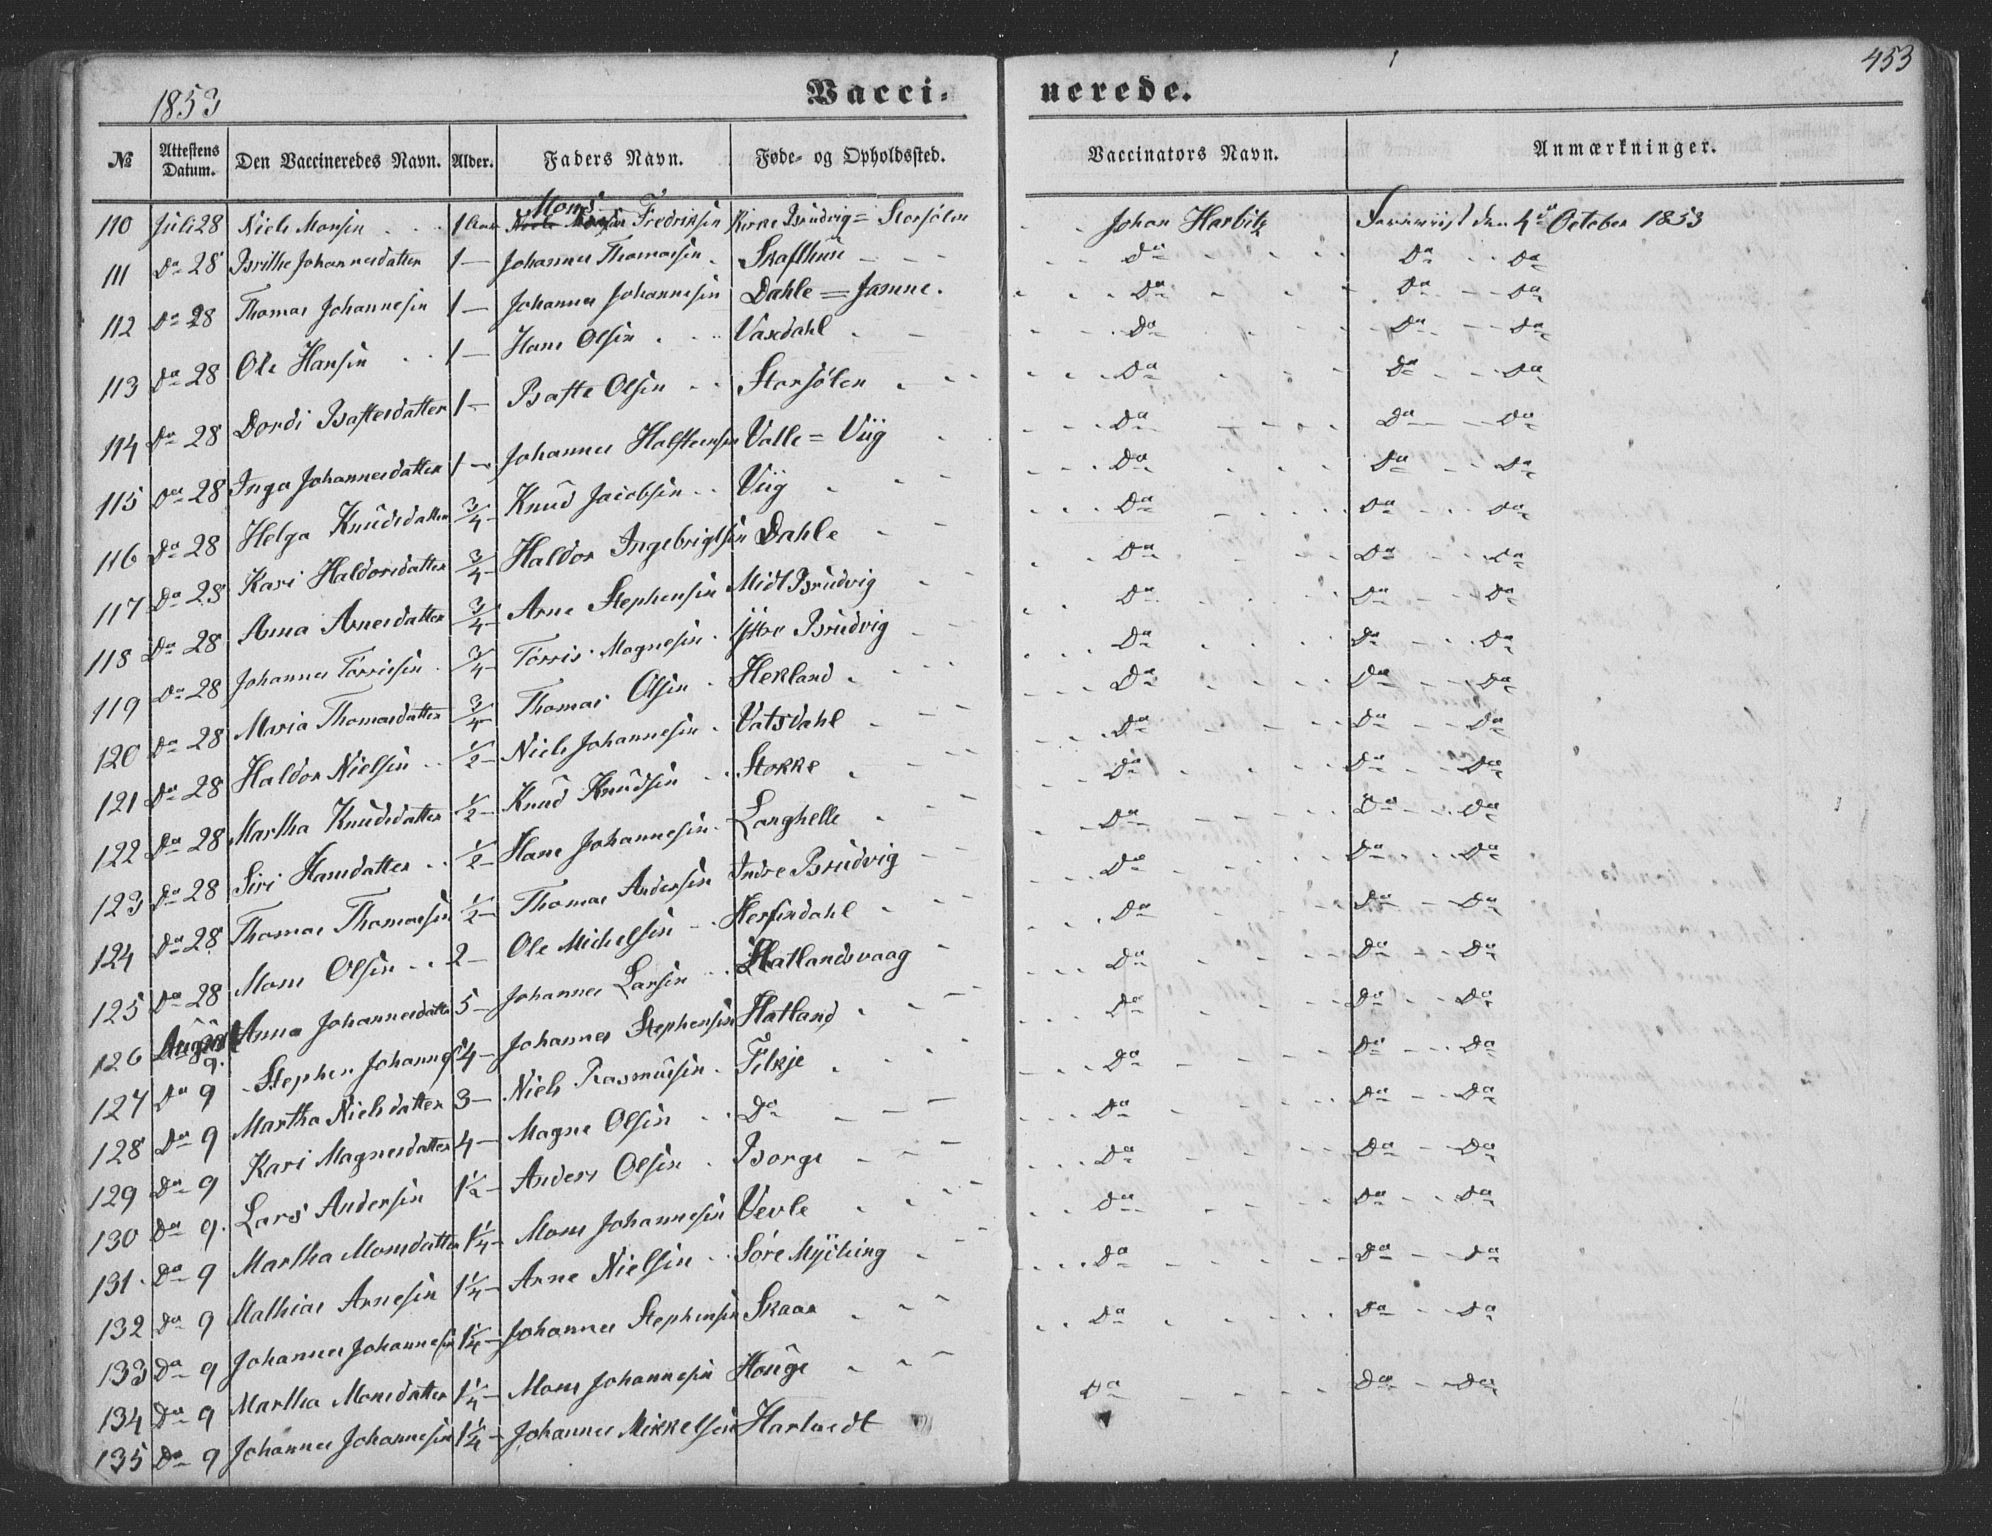 453
1853
Vacci-
nerede.
№ Attestens Datum. Den Vaccineredes Navn. Alder. Faders Navn. Føde- og Opholdssted. Vaccinators Navn. Anmærkninger.
110 Juli 28 Niels Monsen 1 Aar Mons Fredriksen Kirke Brudvig = Storsølen Johan Harbitz den 4de October 1853
111 Do 28 Brithe Johannesdatter 1 Johannes Thomassen Skafthun Do Do Do
112 Do 28 Thomas Johannesen 1 Johannes Johannesen Dahle = Jamne. Do Do Do
113 Do 28 Ole Hansen 1 Hans Olsen Vaxdahl Do Do Do
114 Do 28 Dordi Baftesdatter 1 Bafte Olsen Storsølen Do Do Do
115 Do 28 Inga Johannesdatter 1 Johannes Halsteensen Valle = Viig Do Do Do
116 Do 28 Helga Knudsdatter 3/4 Knud Jacobsen Viig Do Do Do
117 Do 28 Kari Haldorsdatter 3/4 Haldor Ingebrigtsen Dahle Do Do Do
118 Do 28 Anna Arnesdatter 3/4 Arne Stephensen Midt Brudvig Do Do Do
119 Do 28 Johannes Torrisen 3/4 Torris Magnesen Yttre Brudvig Do Do Do
120 Do 28 Maria Thomasdatter 3/4 Thomas Olsen Hekland Do Do Do
121 Do 28 Haldor Nielsen 1/2 Niels Johannesen Vatsdahl Do Do Do
122 Do 28 Martha Knudsdatter 1/2 Knud Knudsen Stokke Do Do Do
123 Do 28 Siri Hansdatter 1/2 Hans Johannesen Langhelle Do Do Do
124 Do 28 Thomas Thomassen 1/2 Thomas Andersen Indre Brudvig Do Do Do
125 Do 28 Mons Olsen 2 Ole Michelsen Hesjedahl Do Do Do
126 August 9. Anna Johannesdatter 5 Johannes Larsen Hatlandsvaag Do Do Do
127 Do 9 Stephen Johannesen 4 Johannes Stephensen Hatland Do Do Do
128 Do 9 Martha Nielsdatter 3 Niels Rasmusen Tikje Do Do Do
129 Do 9 Kari Magnesdatter 4 Magne Olsen Do Do Do Do
130 Do 9. Lars Andersen 1 1/2 Anders Olsen Borge Do Do Do
131 Do 9 Martha Monsdatter 1 1/4 Mons Johannesen Vevle Do Do Do
132 Do 9 Mathias Arnesen 1 1/4 Arne Nielsen Søre Myking Do Do Do
133 Do 9 Johannes Johannesen 1 1/4 Johannes Stephensen Skaar Do Do Do
134 Do 9 Martha Monsdatter 1 1/4 Mons Johannesen Houge Do Do Do
135 Do 9 Johannes Johannesen 1 1/4 Johannes Mikkelsen Hartvedt